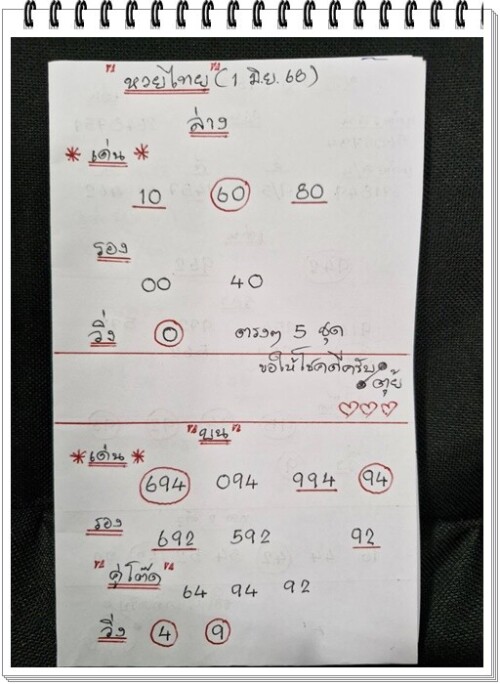 "หวยไทย" (1 มิ.ย. 68)
ล่าง
* เด่น *
10 60 80
รอง
00 40
วิ่ง 0 ตรงๆ 5 ชุด
ขอให้โชคดีครับ
ตุ้ย
♡♡♡
"บน"
* เด่น *
694 094 994 94
รอง 692 592 92
"คู่โต๊ด" 64 94 92
วิ่ง 4 9